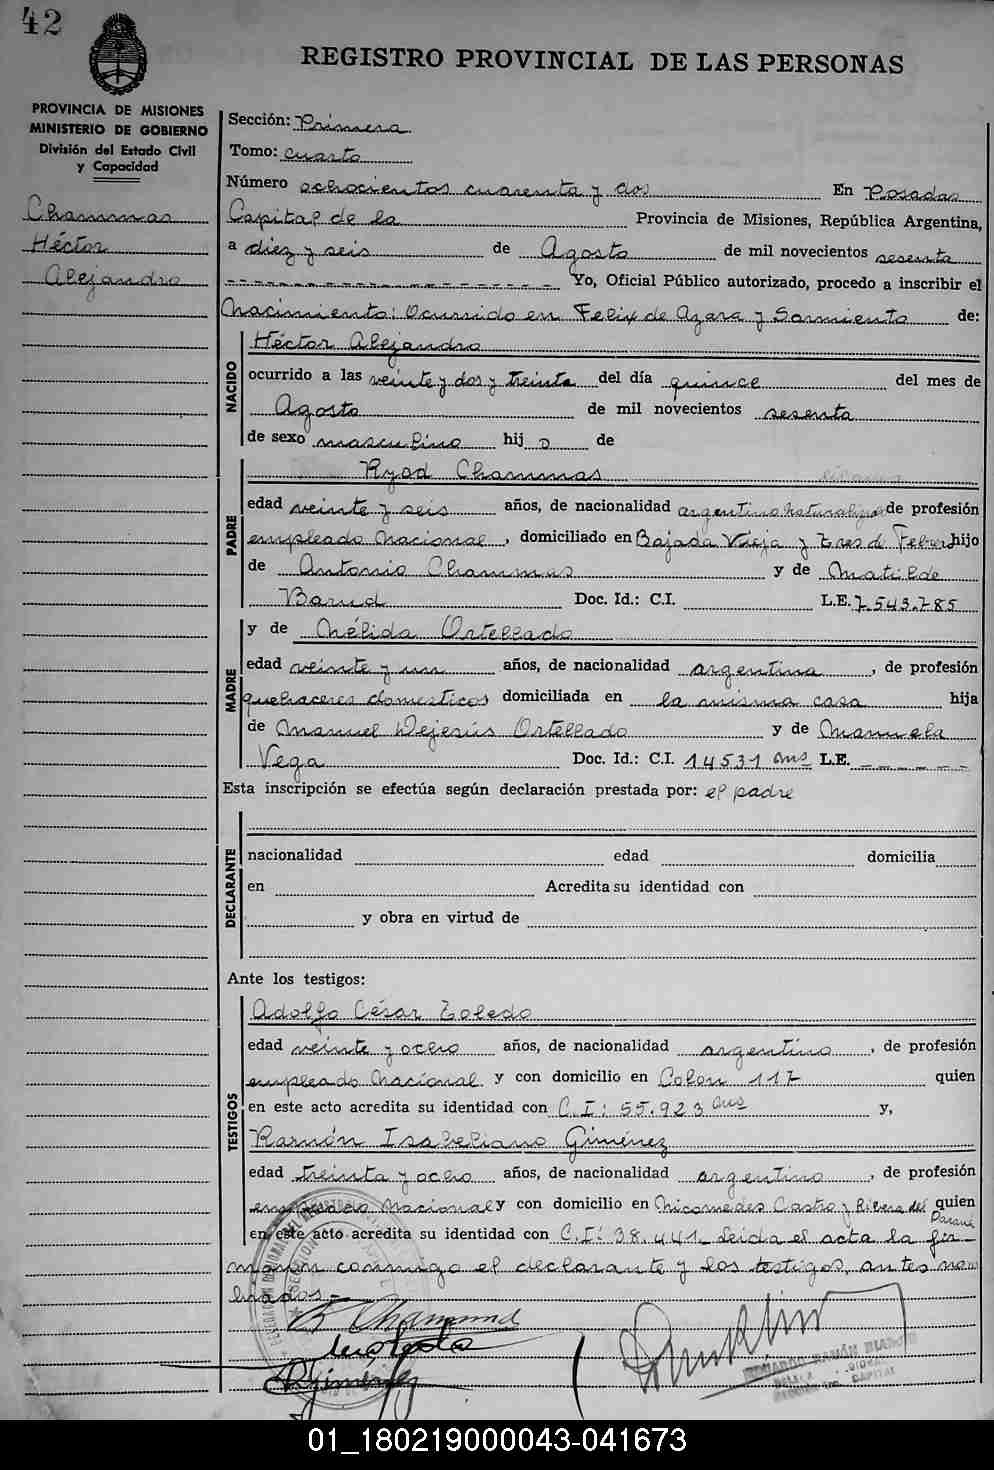 42
REGISTRO PROVINCIAL DE LAS PERSONAS
PROVINCIA DE MISIONES
MINISTERIO DE GOBIERNO
División del Estado Civil
y Capacidad
Chammas
Héctor
Alejandro
Sección: Primera
Tomo: cuarto
Número ochocientos cuarenta y dos En Posadas
Capital de la Provincia de Misiones, República Argentina,
a diez y seis de Agosto de mil novecientos sesenta
Yo, Oficial Público autorizado, procedo a inscribir el
Nacimiento: Ocurrido en Felix de Azara y Sarmiento de:
NACIDO
Héctor Alejandro
ocurrido a las veinte y dos y treinta del día quince del mes de
Agosto de mil novecientos sesenta
de sexo masculino hijo de
PADRE
Ryad Chammas
edad veinte y seis años, de nacionalidad argentino naturalizado de profesión
empleado Nacional, domiciliado en Bajada Vieja y Tres de Febrero hijo
de Antonio Chammas y de Matilde
Barud Doc. Id.: C.I. L.E. 7.543.785
MADRE
y de Nélida Ortellado
edad veinte y un años, de nacionalidad argentina, de profesión
quehaceres domesticos domiciliada en la misma casa hija
de Manuel Dejesús Ortellado y de Manuela
Vega Doc. Id.: C.I. 14531 Mns L.E. - - - - - -
Esta inscripción se efectúa según declaración prestada por: el padre
DECLARANTE
nacionalidad edad domicilia
en Acredita su identidad con
y obra en virtud de
Ante los testigos:
TESTIGOS
Adolfo César Toledo
edad veinte y ocho años, de nacionalidad argentino, de profesión
empleado Nacional y con domicilio en Colon 117 quien
en este acto acredita su identidad con C.I: 55.923 Mns y,
Ramón Isabeliano Giménez
edad treinta y ocho años, de nacionalidad argentino, de profesión
empleado Nacional y con domicilio en Nicomedes Castro y Rivera del Paraná quien
en este acto acredita su identidad con C.I: 38.441. Leida el acta la fir-
maron conmigo el declarante y los testigos, antes nom
brados.-
01_180219000043-041673